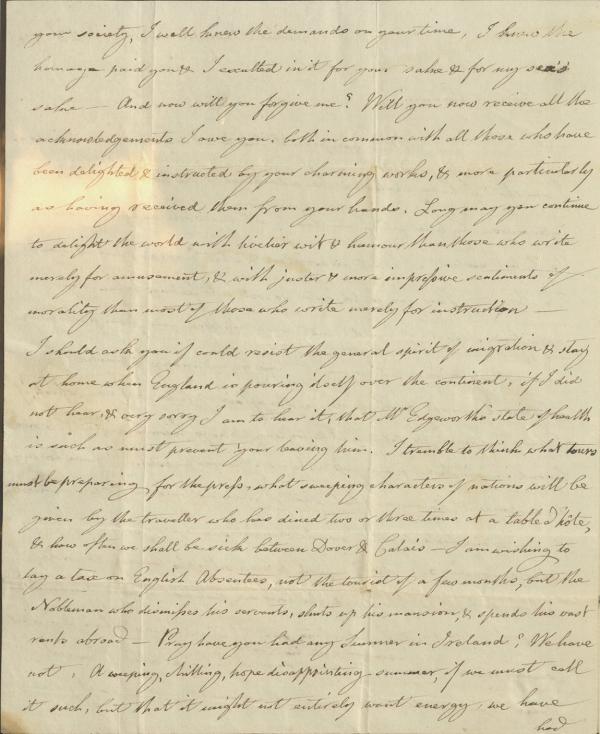 your society, I well knew the demands on your time, I knew the
homage paid you & I exulted in it for your sake & for my sex's
sake — And now will you forgive me? Will you now receive all the
acknowledgements I owe you, both in common with all those who have
been delighted & instructed by your charming works, & more particularly
as having received them from your hands. Long may you continue
to delight the world with livelier wit & humour than those who write
merely for amusement, & with juster & more impressive sentiments of
morality than most of those who write merely for instruction —
I should ask you if could resist the general spirit of migration & stay
at home when England is pouring itself over the continent, if I did
not hear, & very sorry I am to hear it, that Mr Edgeworth's state of health
is such as must prevent your leaving him. I tremble to think what tours
must be preparing for the press, what sweeping characters of nations will be
given by the traveller who has dined two or three times at a table d'hôte,
& how often we shall be sick between Dover & Calais — I am wishing to
lay a tax on English Absentees, not the tourist of a few months, but the
Nobleman who dismisses his servants, shuts up his mansion, & spends his vast
rents abroad — Pray have you had any Summer in Ireland? We have
not. A weeping, chilling, hope disappointing summer, if we must call
it such, but that it might not entirely want energy, we have
had